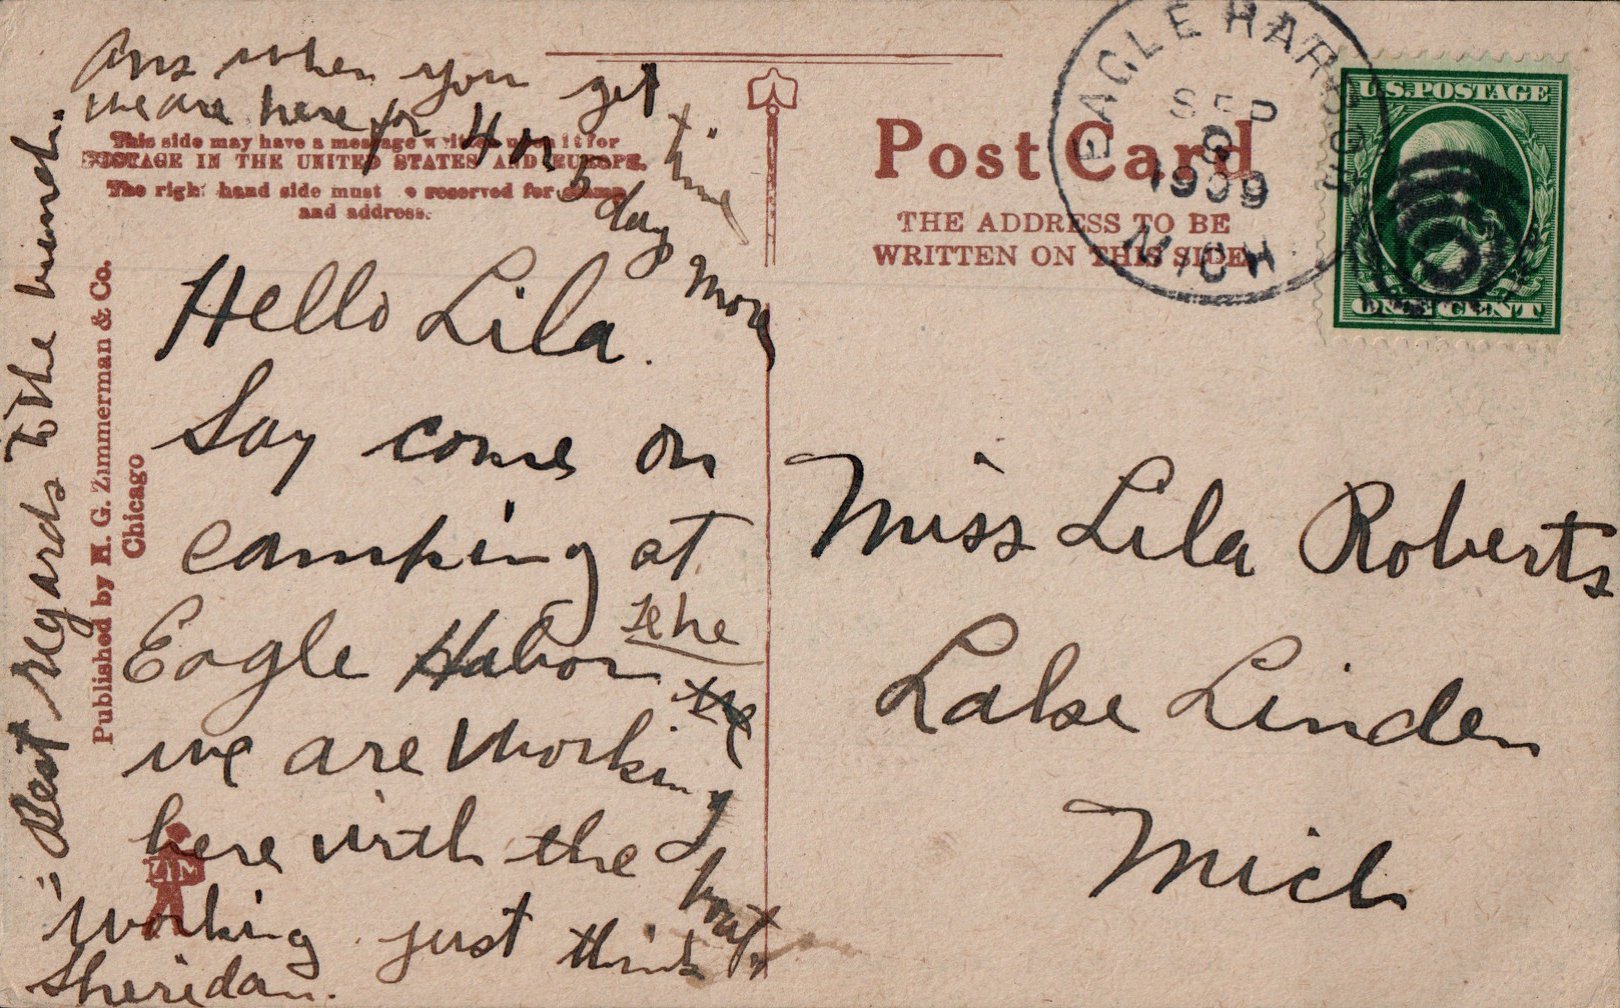 Ans when you get time
we are here for 4 or 5 day more
This side may have a message written upon it for
POSTAGE IN THE UNITED STATES AND EUROPE.
The right hand side must be reserved for stamp
and address.
Hello Lila.
Say come on
camping at
Eagle Habor
we are working
here with the boat.
working just think
Sheridan.
"Best regards to the bunch.
Published by H. G. Zimmerman & Co.
Chicago
ZIM
Post Card
THE ADDRESS TO BE
WRITTEN ON THIS SIDE
EAGLE HARBOR
SEP
8
1909
MICH.
U.S. POSTAGE
ONE CENT
Miss Lila Roberts
Lake Linden
Mich